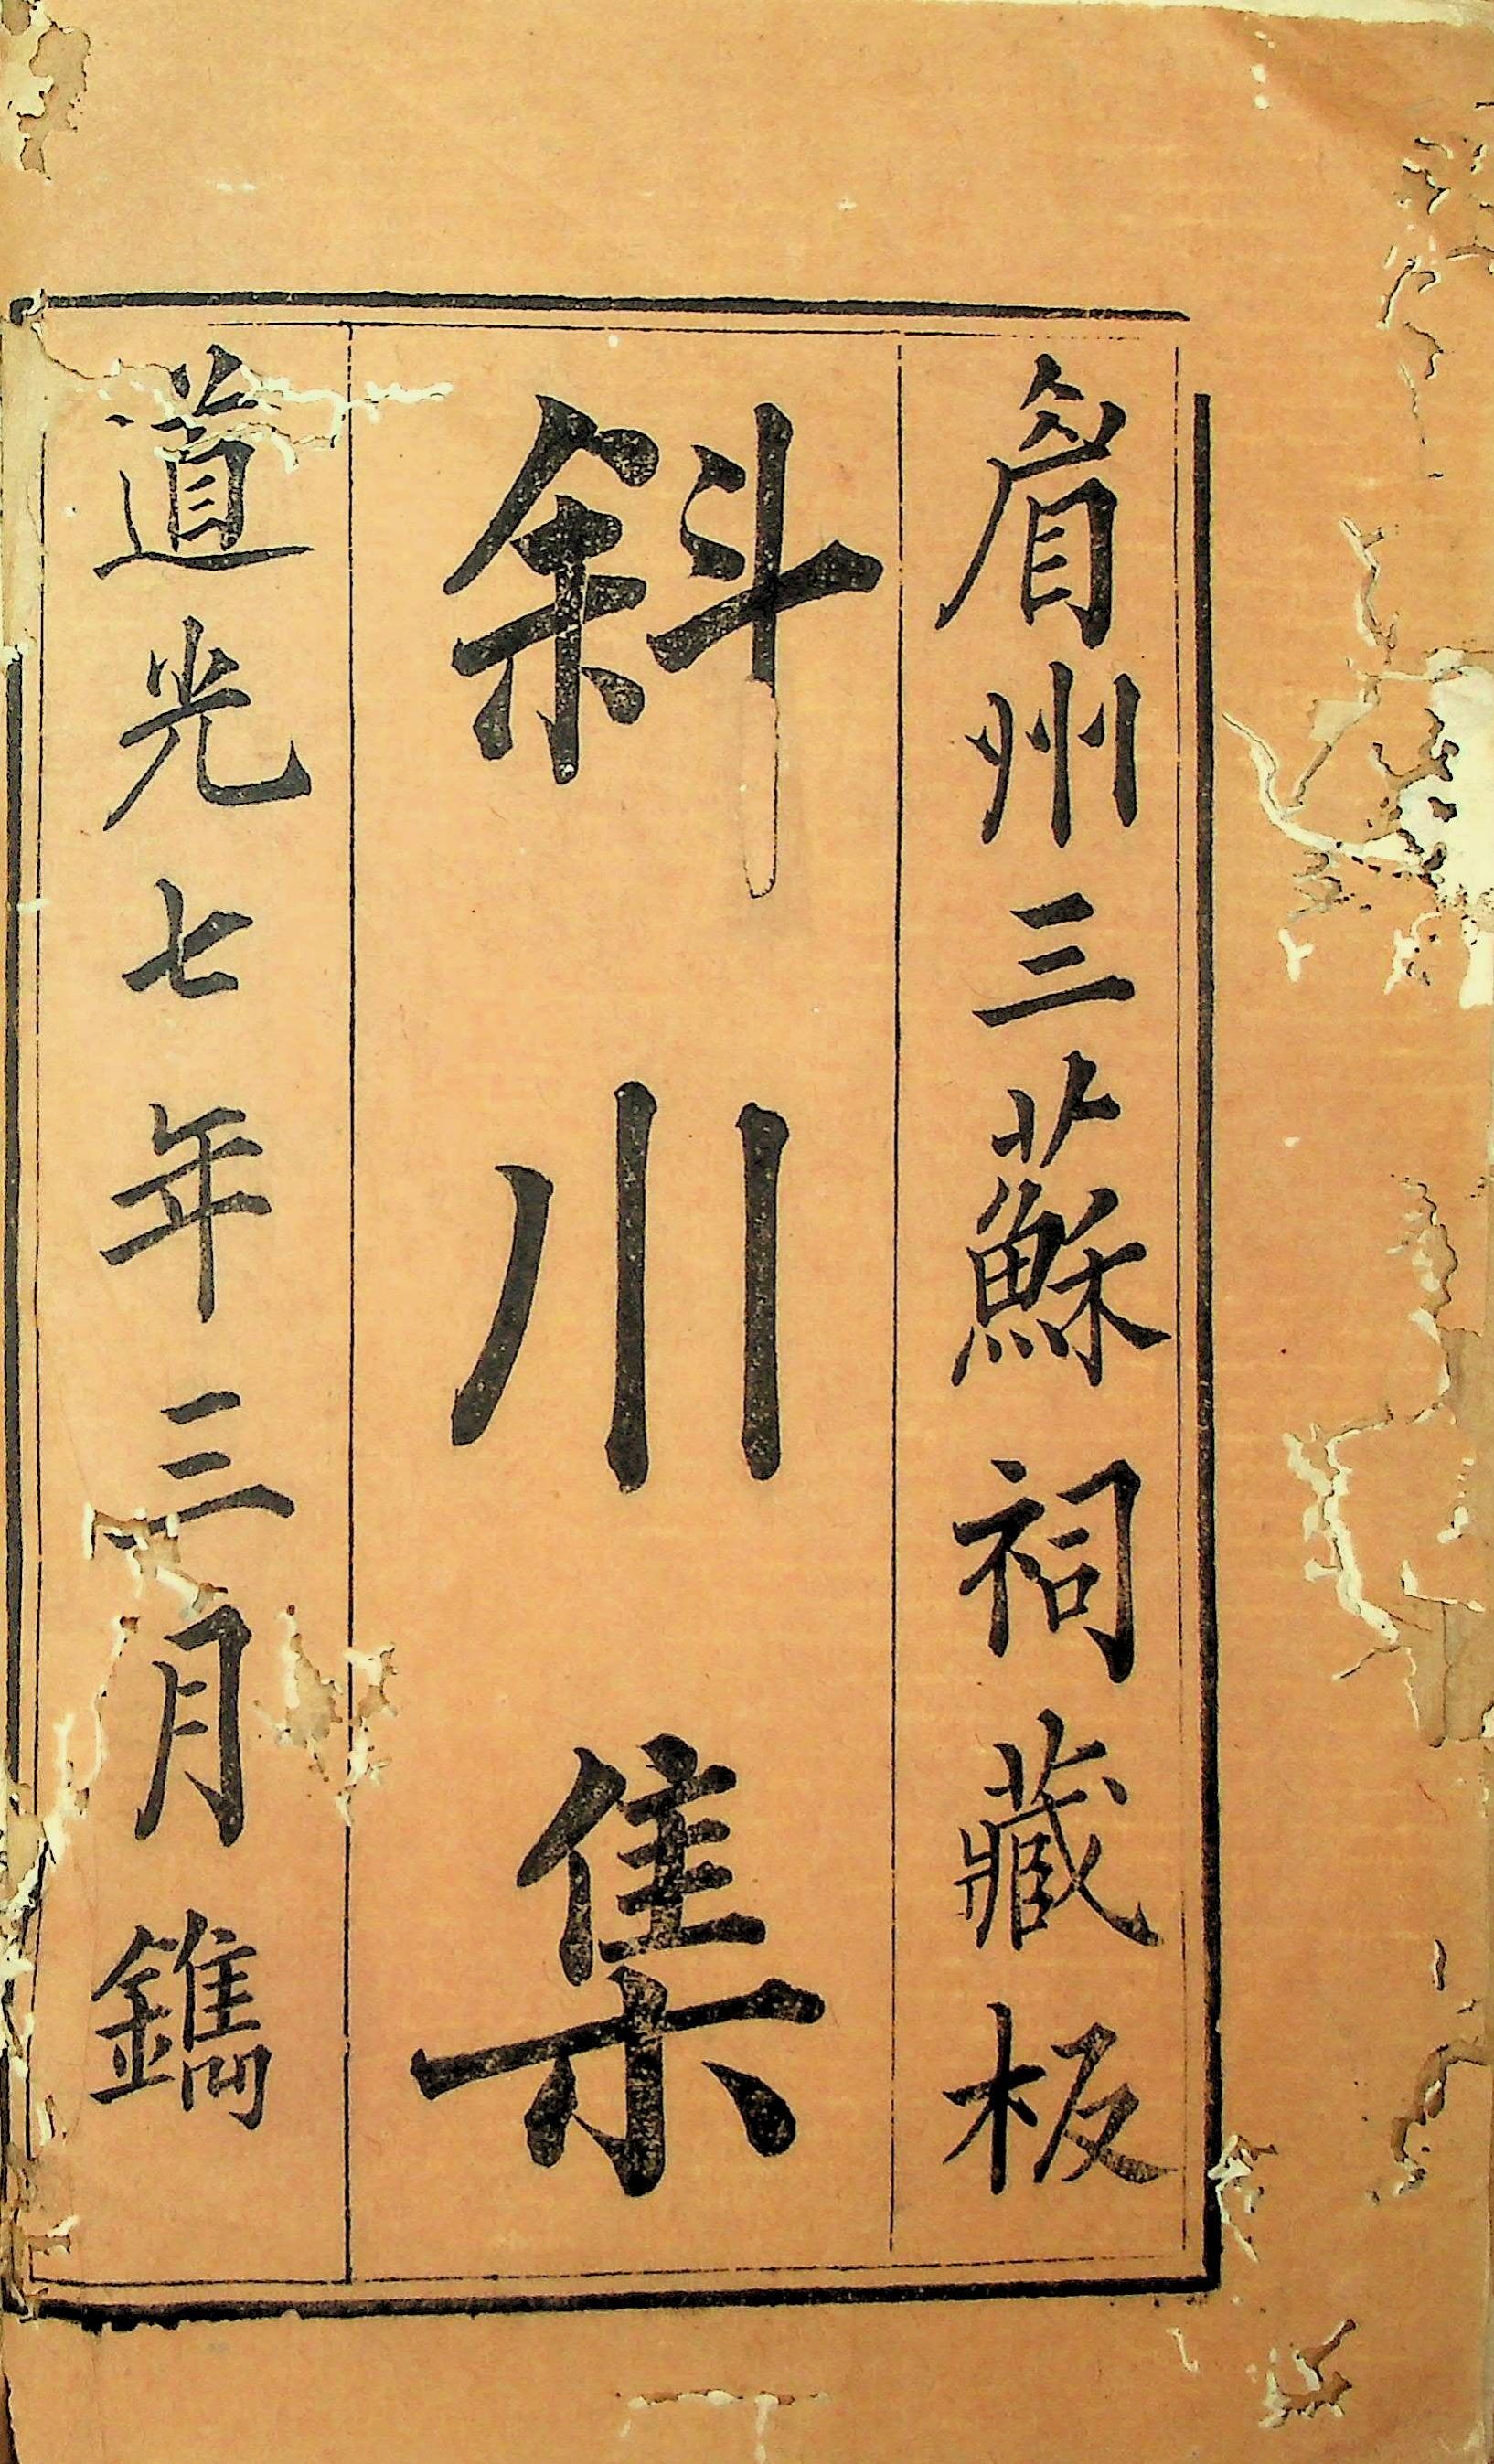 眉州三蘇祠藏板
斜川集
道光七年三月鐫